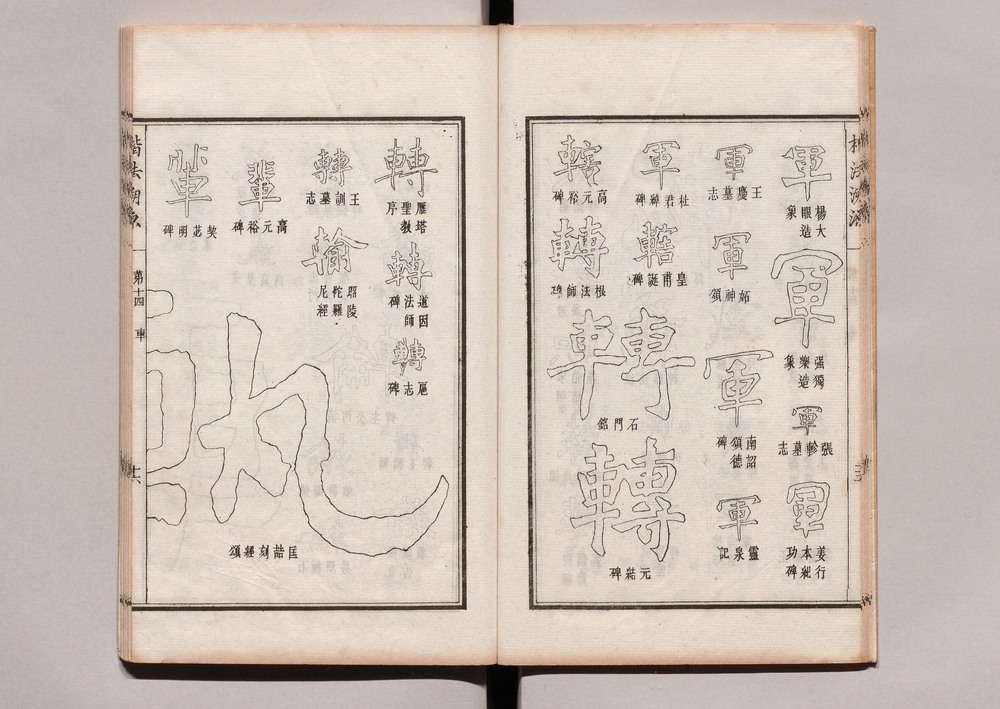 軍
楊大
眼造
象
軍
强獨
樂造
象
軍
張軫墓志
軍
姜行
本紀
功碑
軍
王慶墓志
軍
妬神頌
軍
南詔
頌德
碑
軍
靈泉記
軍
杜君綽碑
轄
皇甫誕碑
石門銘
轉
元結碑
轄
高元裕碑
轉
根法師碑
轉
雁塔
聖教
序
轉
道因
法師
碑
轉
志碑
轉
王訓墓志
輸
昭陵
陀羅
尼經
輩
高元裕碑
輩
契苾明碑
軌
匡喆刻經頌
楷法溯源
第十四 車
十六